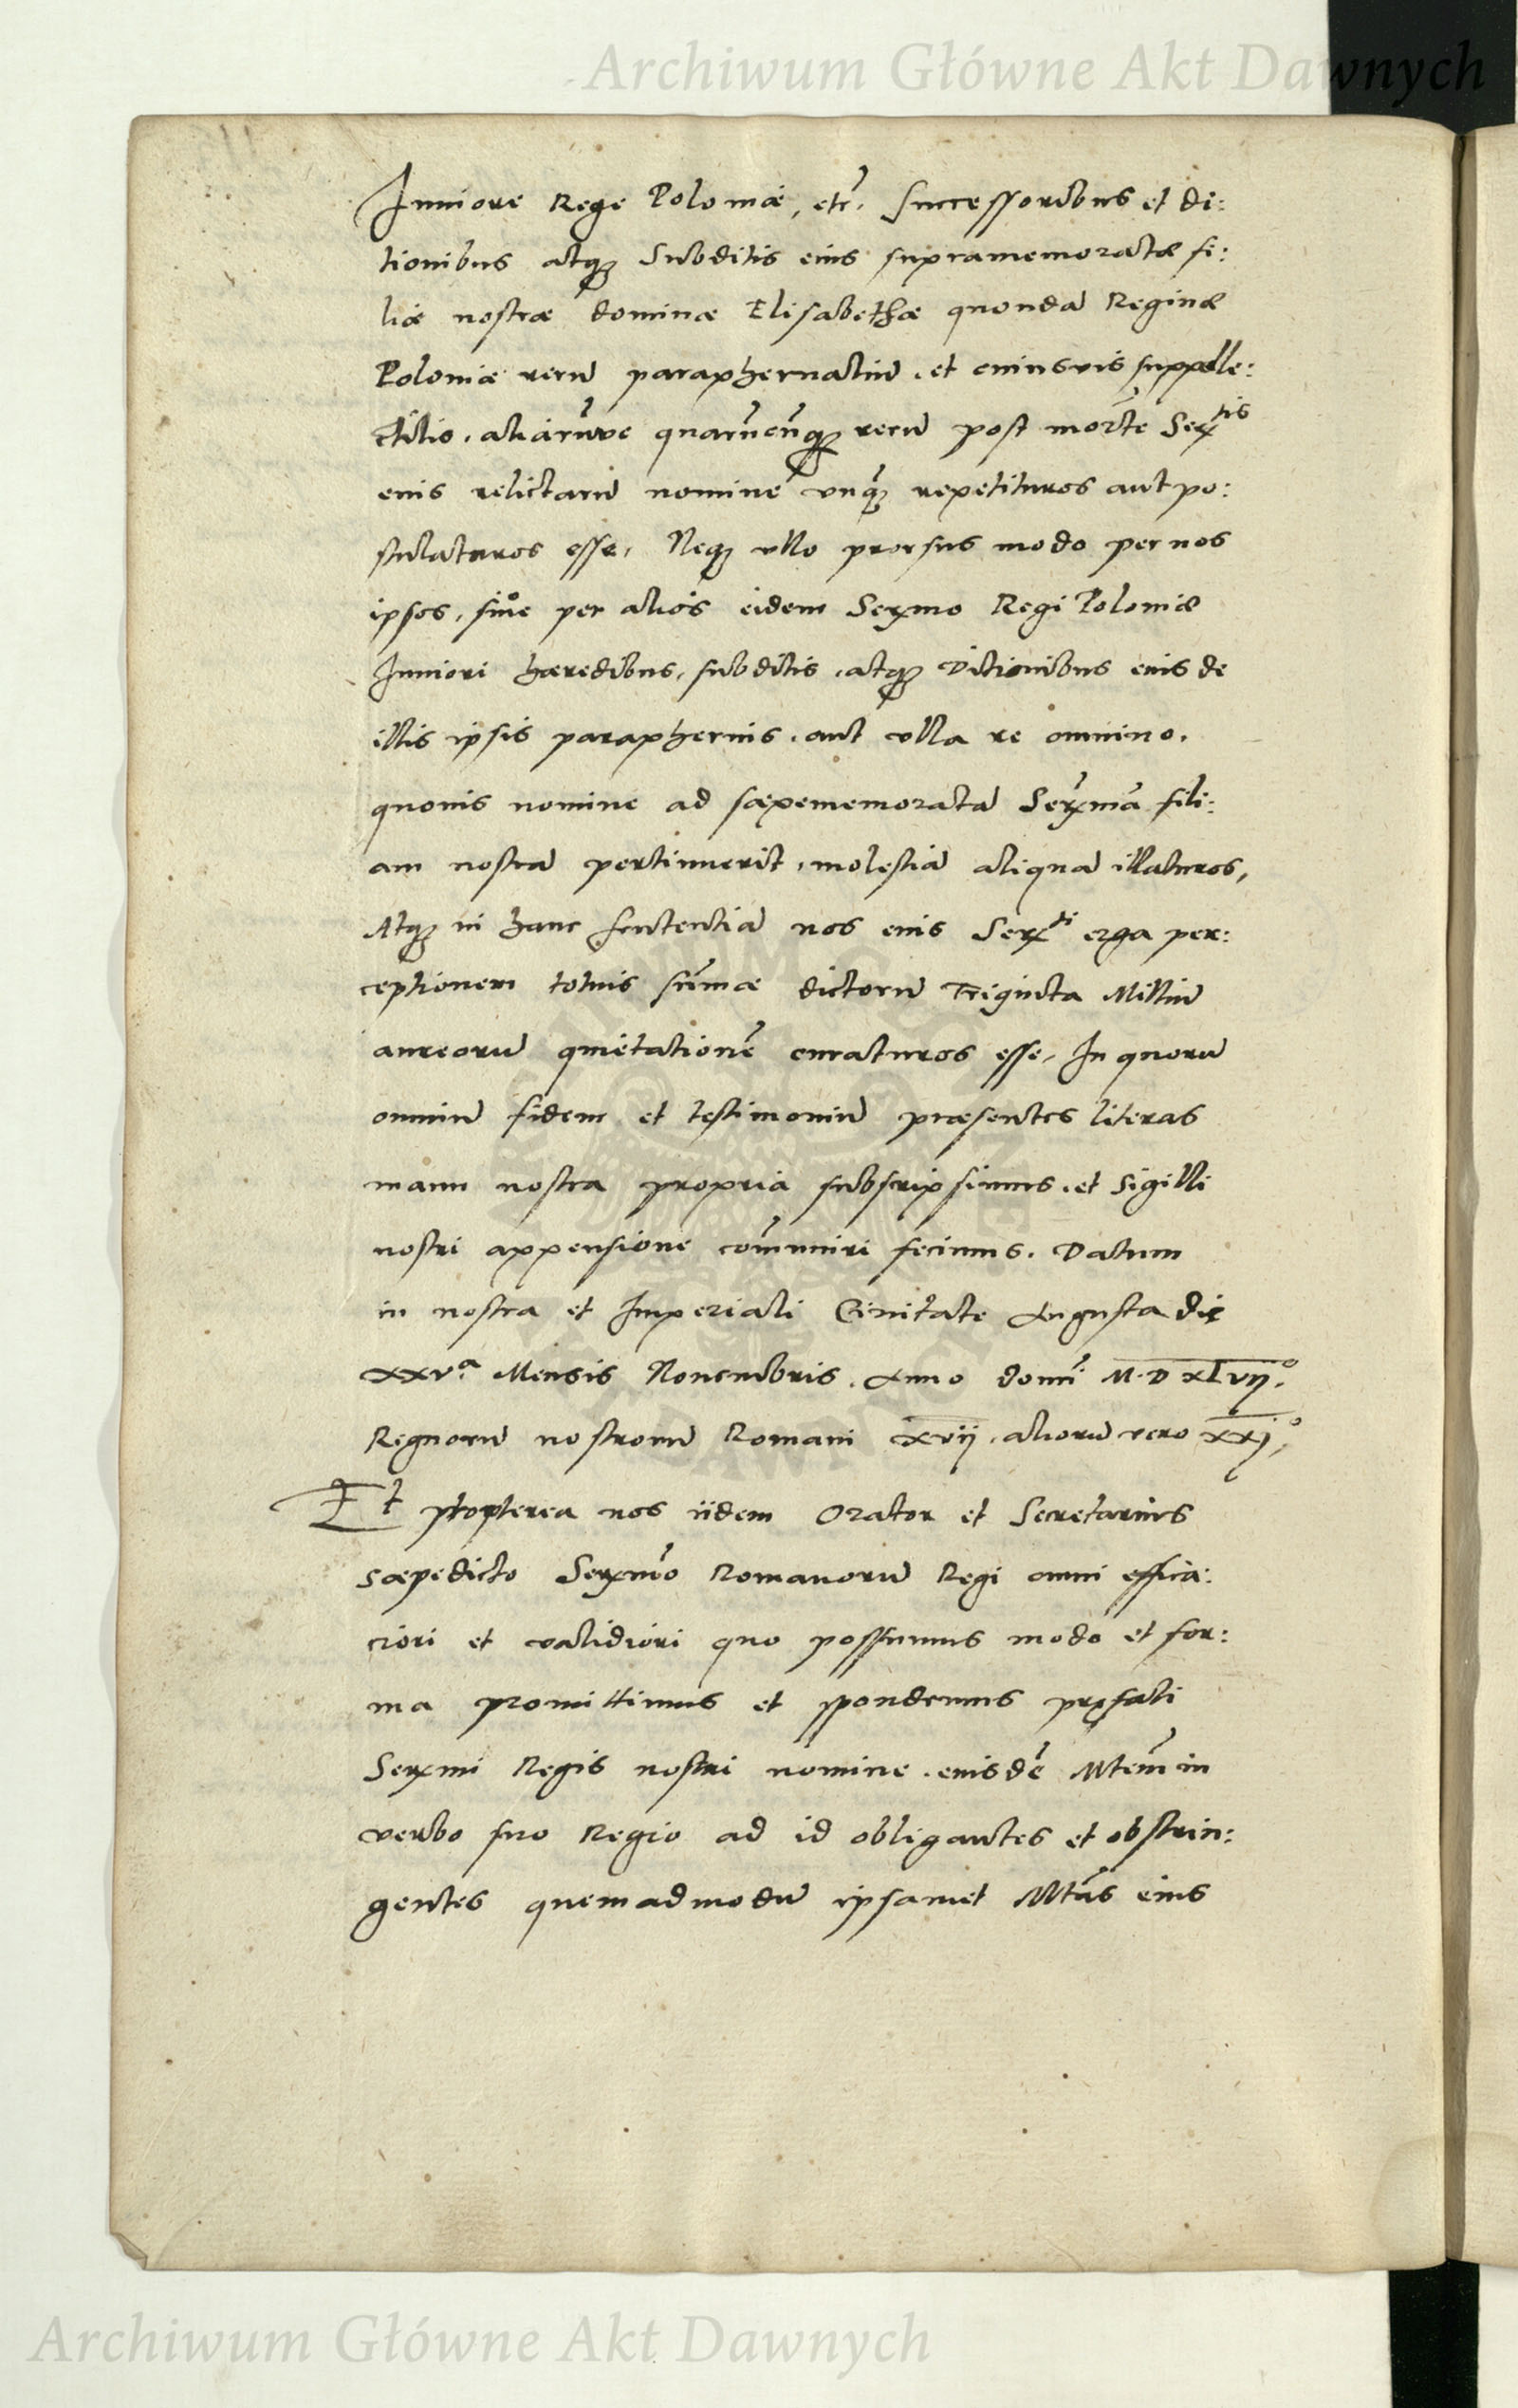 Archiwum Główne Akt Dawnych
Iuniore Rege Poloniæ, etc̃. successoribus et di:
tionibus atq3 Subditis eius supramemoratæ fi:
liæ nostræ dominæ Elisabethæ quondã Reginæ
Poloniæ rerũ paraphernaliũ, et cuiusvis suppelle:
ctilis, aliarũve quarũcũq3 rerũ post mortẽ Serᵗⁱˢ
eius relictarũ nomine vnq̃3 repetituros aut po:
stulaturos esse, Neq3 vllo prorsus modo per nos
ipsos, siue per alios eidem Serᵐᵒ Regi Poloniæ
Iuniori hæredibus, subditis, atq3 Ditionibus eius de
illis ipsis paraphernis, aut vlla re omnino,
quouis nomine ad sæpememoratã Serᵐã fili:
am nostrã pertinuerit, molestiã aliquã illaturos,
Atq3 in hanc sententiã nos eius Serᵗⁱ erga per:
ceptionem totius sũmæ dictorũ Triginta Milliũ
aureorũ quietationẽ curaturos esse, In quorũ
omniũ fidem et testimoniũ præsentes literas
manu nostra propria subscripsimus, et Sigilli
nostri appensione com̃uniri fecimus. Datum
in nostra et Imperiali Ciuitate Augusta die
xxvᵃ Mensis Nouembris. Anno domĩ M.D xLvij°.
Regnorũ nostrorũ Romani xvij, aliorũ vero xxj°,
Et propterea nos iidem Orator et Secretarius
sæpedicto Serᵐõ Romanorũ Regi omni effica:
ciori et validiori quo possumus modo et for:
ma promittimus et spondemus pręfati
Serᵐⁱ Regis nostri nomine, eiusdẽ Mtem̃ in
verbo suo Regio ad id obligantes et obstrin:
gentes quemadmodũ ipsamet Mtãs eius
Archiwum Główne Akt Dawnych